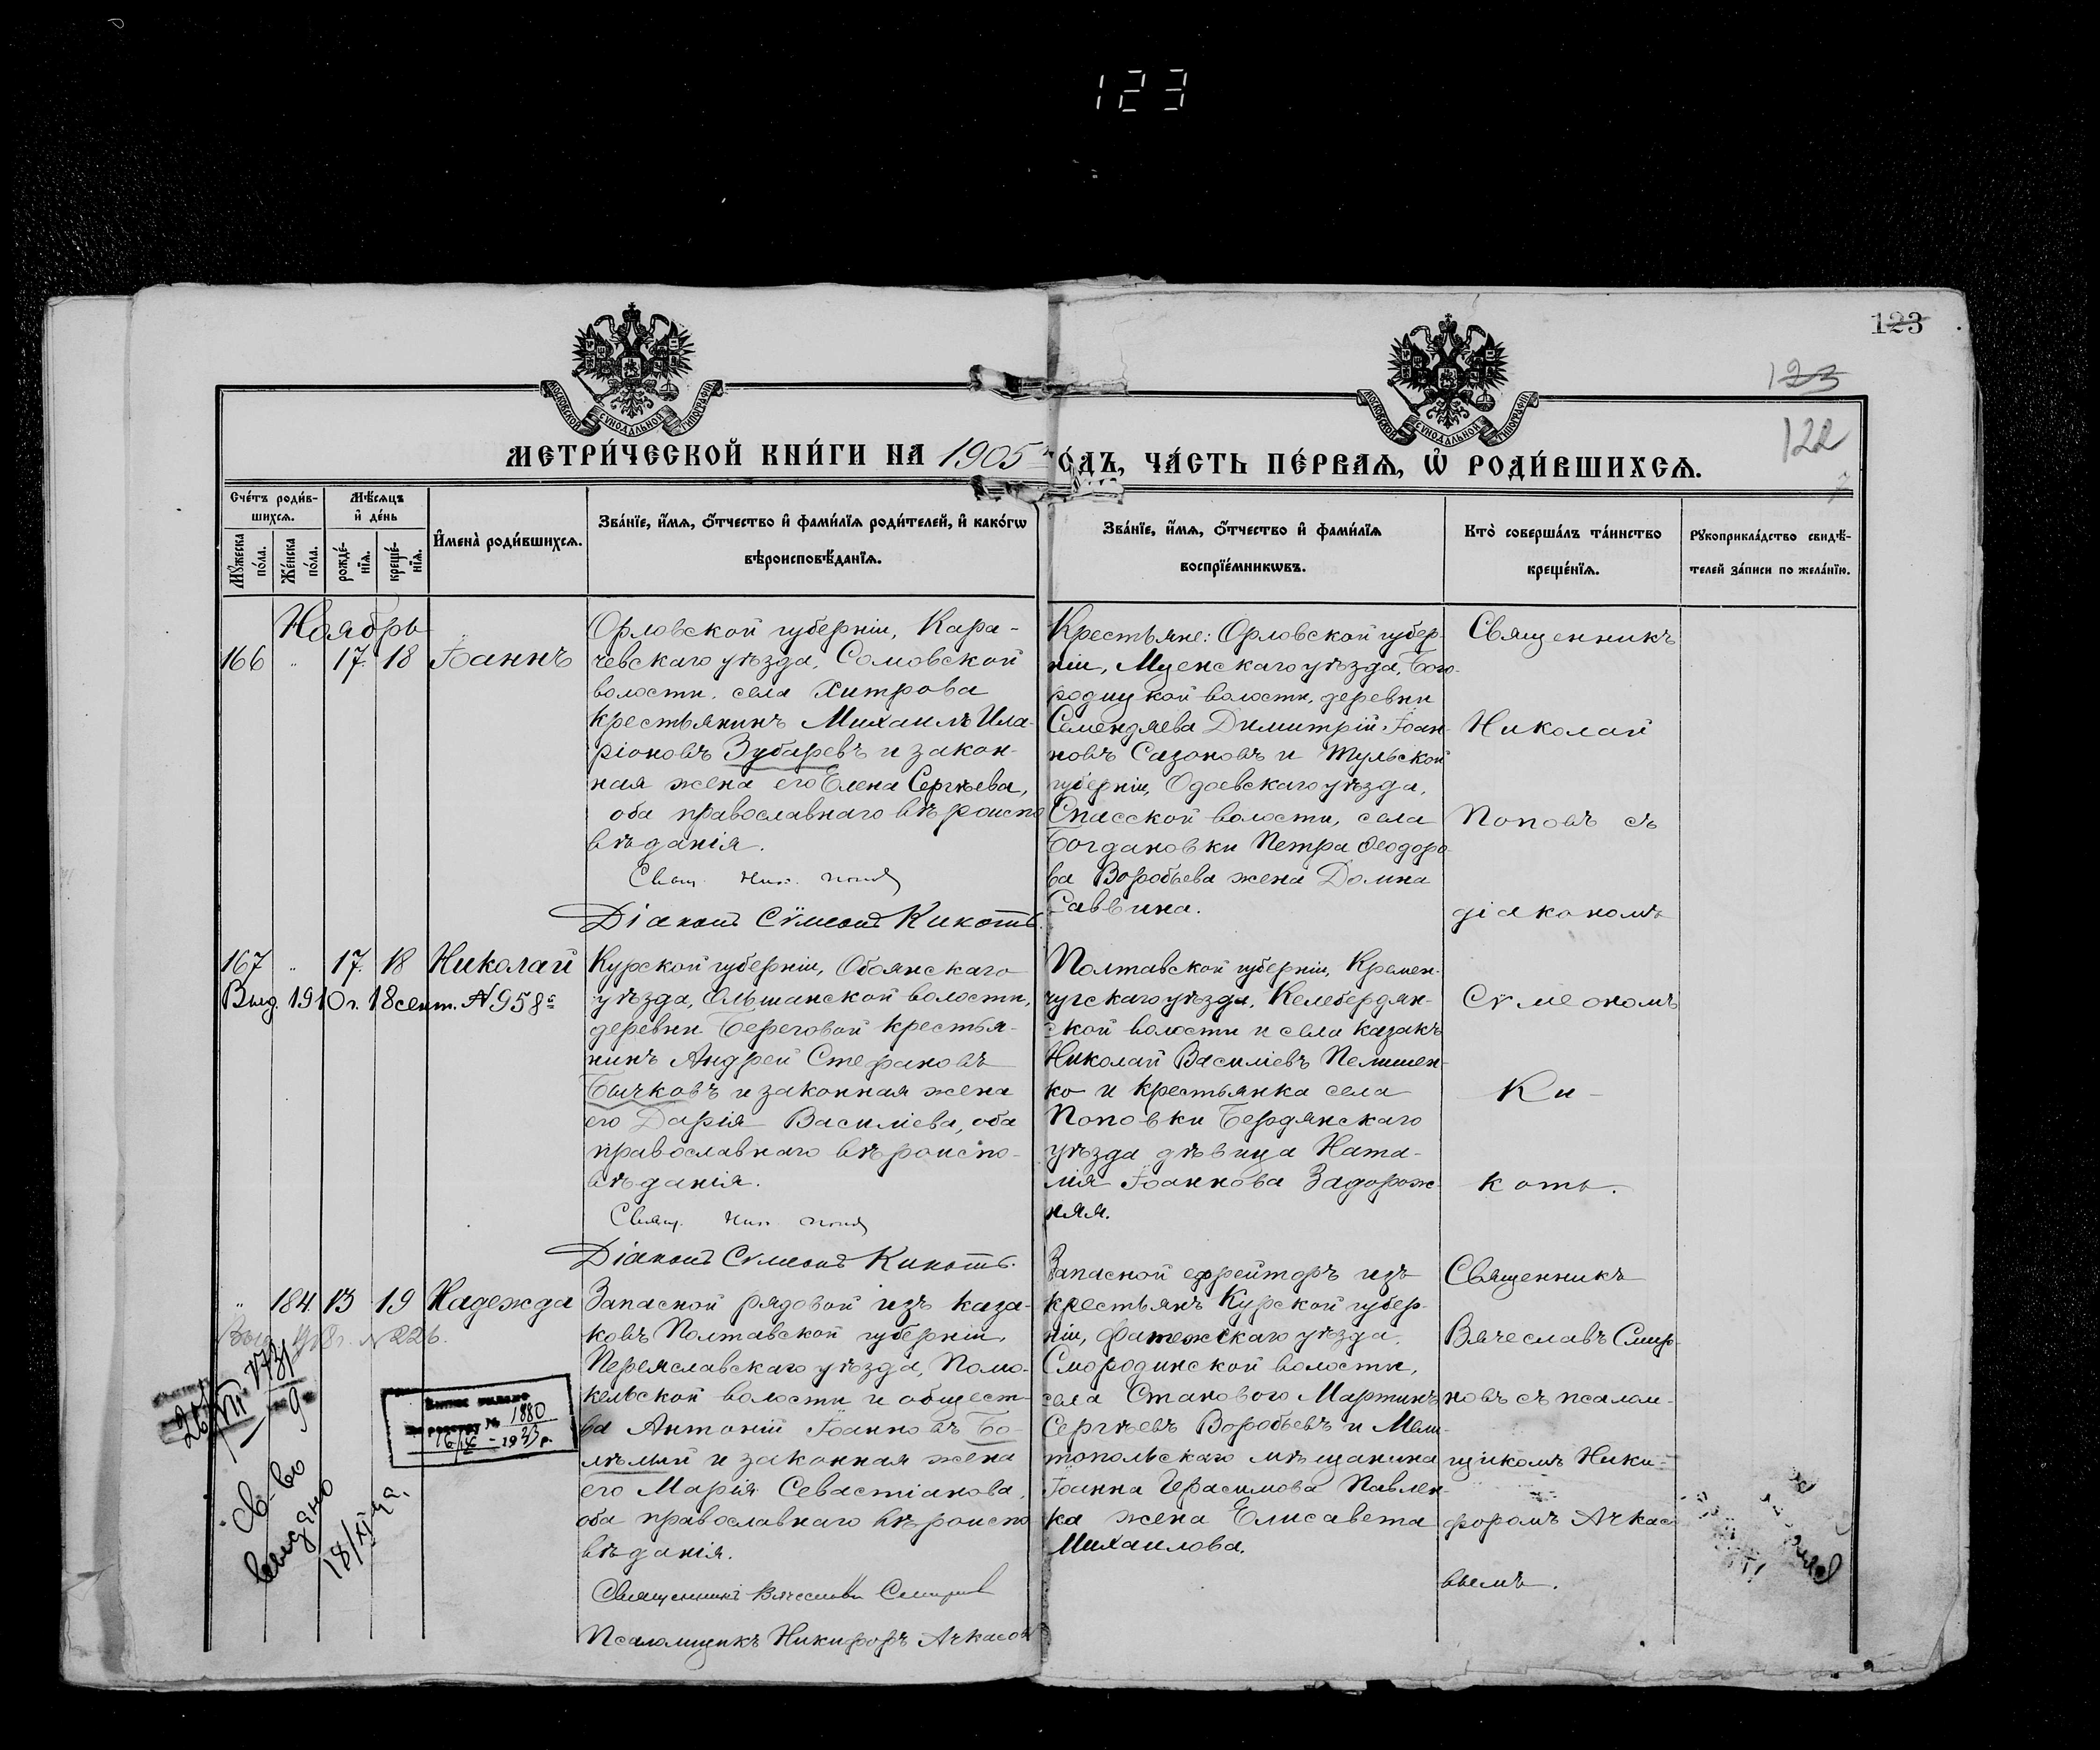 123
123
123
122
МОСКОВСКОЙ СѴНОДАЛЬНОЙ ТИПОГРАФІИ
МОСКОВСКОЙ СѴНОДАЛЬНОЙ ТИПОГРАФІИ
МЕТРИ́ЧЕСКОЙ КНИ́ГИ НА 1905 го́дъ, ЧА́СТЬ ПЕ́РВАѦ, Ѡ҆ РОДИ́ВШИХСѦ.
Сче́тъ роди́в-
шихсѧ.
Мѣ́сѧцъ
и҆ де́нь
Мꙋ́жеска
по́ла.
Же́нска
по́ла.
рожде́-
нїѧ.
креще́-
нїѧ.
И҆мена̀ роди́вшихсѧ.
Зва́нїе, и҆́мѧ, ѻ҆́тчество и҆ фами́лїѧ роди́телей, и҆ како́гѡ
вѣроисповѣ́данїѧ.
Зва́нїе, и҆́мѧ, ѻ҆́тчество и҆ фами́лїѧ
воспрїе́мникѡвъ.
Кто̀ соверша́лъ та́инство
креще́нїѧ.
Рꙋкоприкла́дство свидѣ́-
телей за́писи по жела́нїю.
Ноябрь
166 " 17. 18 Іоаннъ
Орловской губерніи, Кара-
чевскаго уѣзда, Сомовской
волости, села Хитрова
крестьянинъ Михаилъ Ила-
ріоновъ Зубаревъ и закон-
ная жена его Елена Сергѣева,
оба православнаго вѣроиспо
вѣданія.
Свящ. Ник. Попов
Діаконъ Сѵмеонъ Кикоть.
Крестьяне: Орловской губер-
ніи, Мценскаго уѣзда, Бого-
родицкой волости, деревни
Семендяева Димитрій Іоан-
новъ Сазоновъ и Тульской
губерніи, Одоевскаго уѣзда,
Спасской волости, села
Богдановки Петра Ѳеодоро
ва Воробьева жена Домна
Саввина.
Священникъ
Николай
Поповъ съ
діакономъ
167 " 17. 18 Николай
Выд. 1910 г. 18 сент. № 958
Курской губерніи, Обоянскаго
уѣзда, Ольшанской волости,
деревни Береговой крестья-
нинъ Андрей Стефановъ
Бычковъ и законная жена
его Дарія Василіева, оба
православнаго вѣроиспо-
вѣданія.
Свящ. Ник. Попов
Діаконъ Сѵмеонъ Кикоть.
Полтавской губерніи, Кремен-
чугскаго уѣзда, Келебердян-
ской волости и села казакъ
Николай Василіевъ Пелишен-
ко и крестьянка села
Поповки Бердянскаго
уѣзда дѣвица Ната-
лія Іоаннова Задорож-
няя.
Сѵмеономъ
Ки-
коть.
" 184 13 19 Надежда
№ 226.
1880
св-во
выдано
Запасной рядовой изъ каза-
ковъ Полтавской губерніи,
Переяславскаго уѣзда, Помо-
кельской волости и общест-
ва Антоній Іоанновъ Бо-
лѣлый и законная жена
его Марія Севастіанова,
оба православнаго вѣроиспо
вѣданія.
Священникъ Вячеславъ Смирнов
Псаломщикъ Никифоръ Ачкасов
Запасной ефрейторъ изъ
крестьянъ Курской губер-
ніи, Фатежскаго уѣзда,
Смородинской волости,
села Станового Мартинъ
Сергѣевъ Воробьевъ и Мели-
топольскаго мѣщанина
Іоанна Герасимова Павлен-
ка жена Елисавета
Михаилова.
Священникъ
Вячеславъ Смир-
новъ съ псалом-
щикомъ Ники-
форомъ Ачкасо
вымъ.